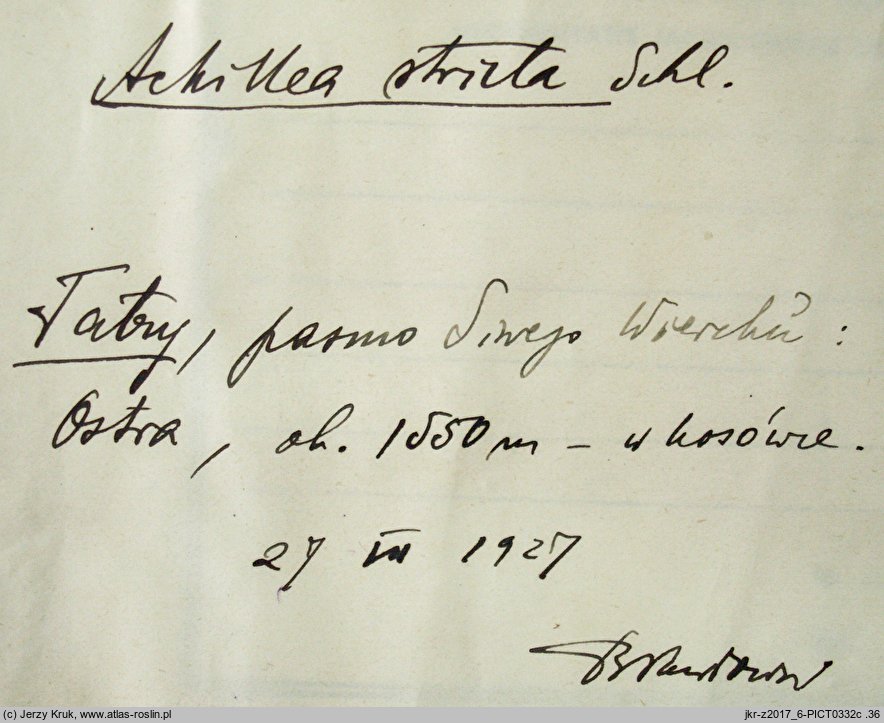 Achillea stricta Schl.
Tatry, pasmo Siwego Wierchu :
Ostra, ok. 1550 m – w kosówce.
27 VII 1927
(c) Jerzy Kruk, www.atlas-roslin.pl
jkr-z2017_6-PICT0332c .36